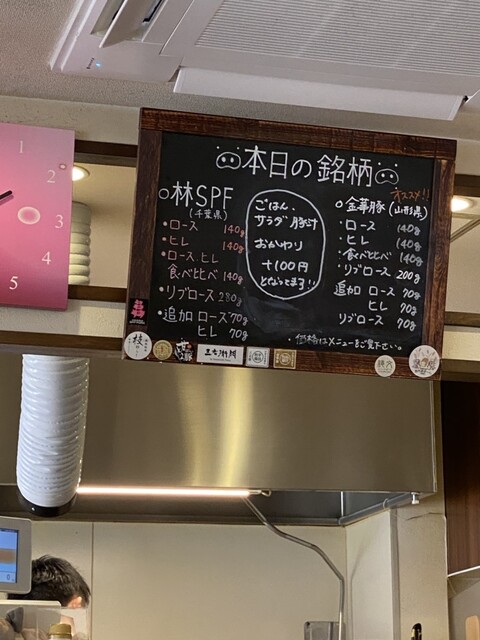 本日の銘柄
林SPF
(千葉県)
・ロース 140g
・ヒレ 140g
・ロース、ヒレ
食べ比べ 140g
・リブロース 280g
・追加 ロース 70g
ヒレ 70g
ごはん、
サラダ 豚汁
おかわり
+100円
となってます!!
オススメ!!
金華豚(山形県)
・ロース 140g
・ヒレ 140g
・食べ比べ 140g
・リブロース 200g
追加 ロース 70g
ヒレ 70g
リブロース 70g
・価格はメニューをご覧下さい。
1
2
3
4
5